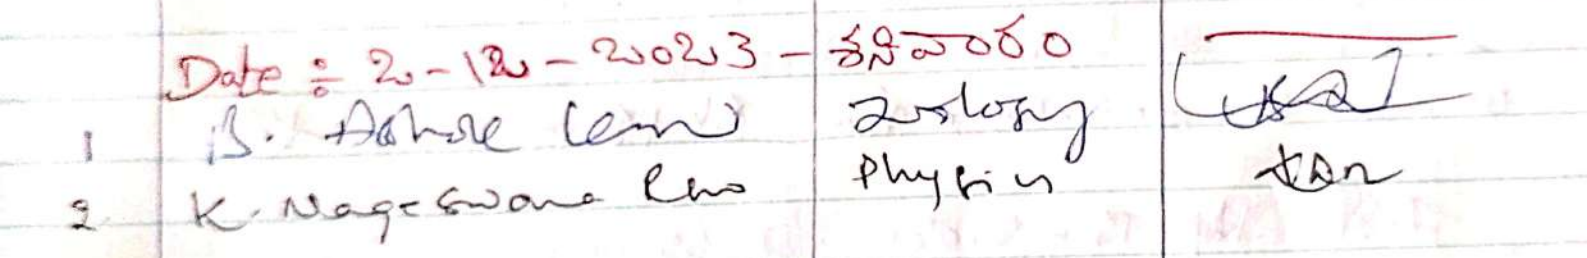 Date : 2-12-2023 - శనివారం
1 B. Ashok zoology
2 K. Nageswara Rao Physics